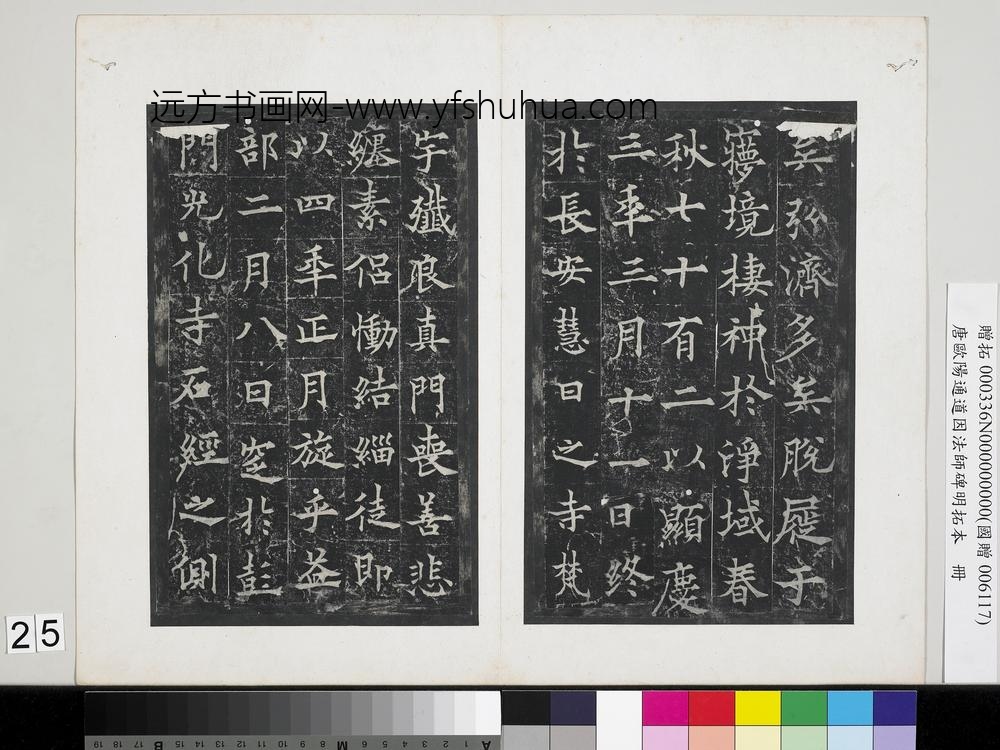 远方书画网-www.yfshuhua.com
矣弘濟多矣脫屣于
夢境棲神於淨域春
秋七十有二以顯慶
三年三月十一日終
於長安慧日之寺梵
宇殲良真門喪善悲
纏素侶慟結緇徒即
以四年正月旋乎益
部二月八日窆於彭
門光化寺石經之側
贈拓 000336N000000000(國贈 006117)
唐歐陽通道因法師碑明拓本 冊
25